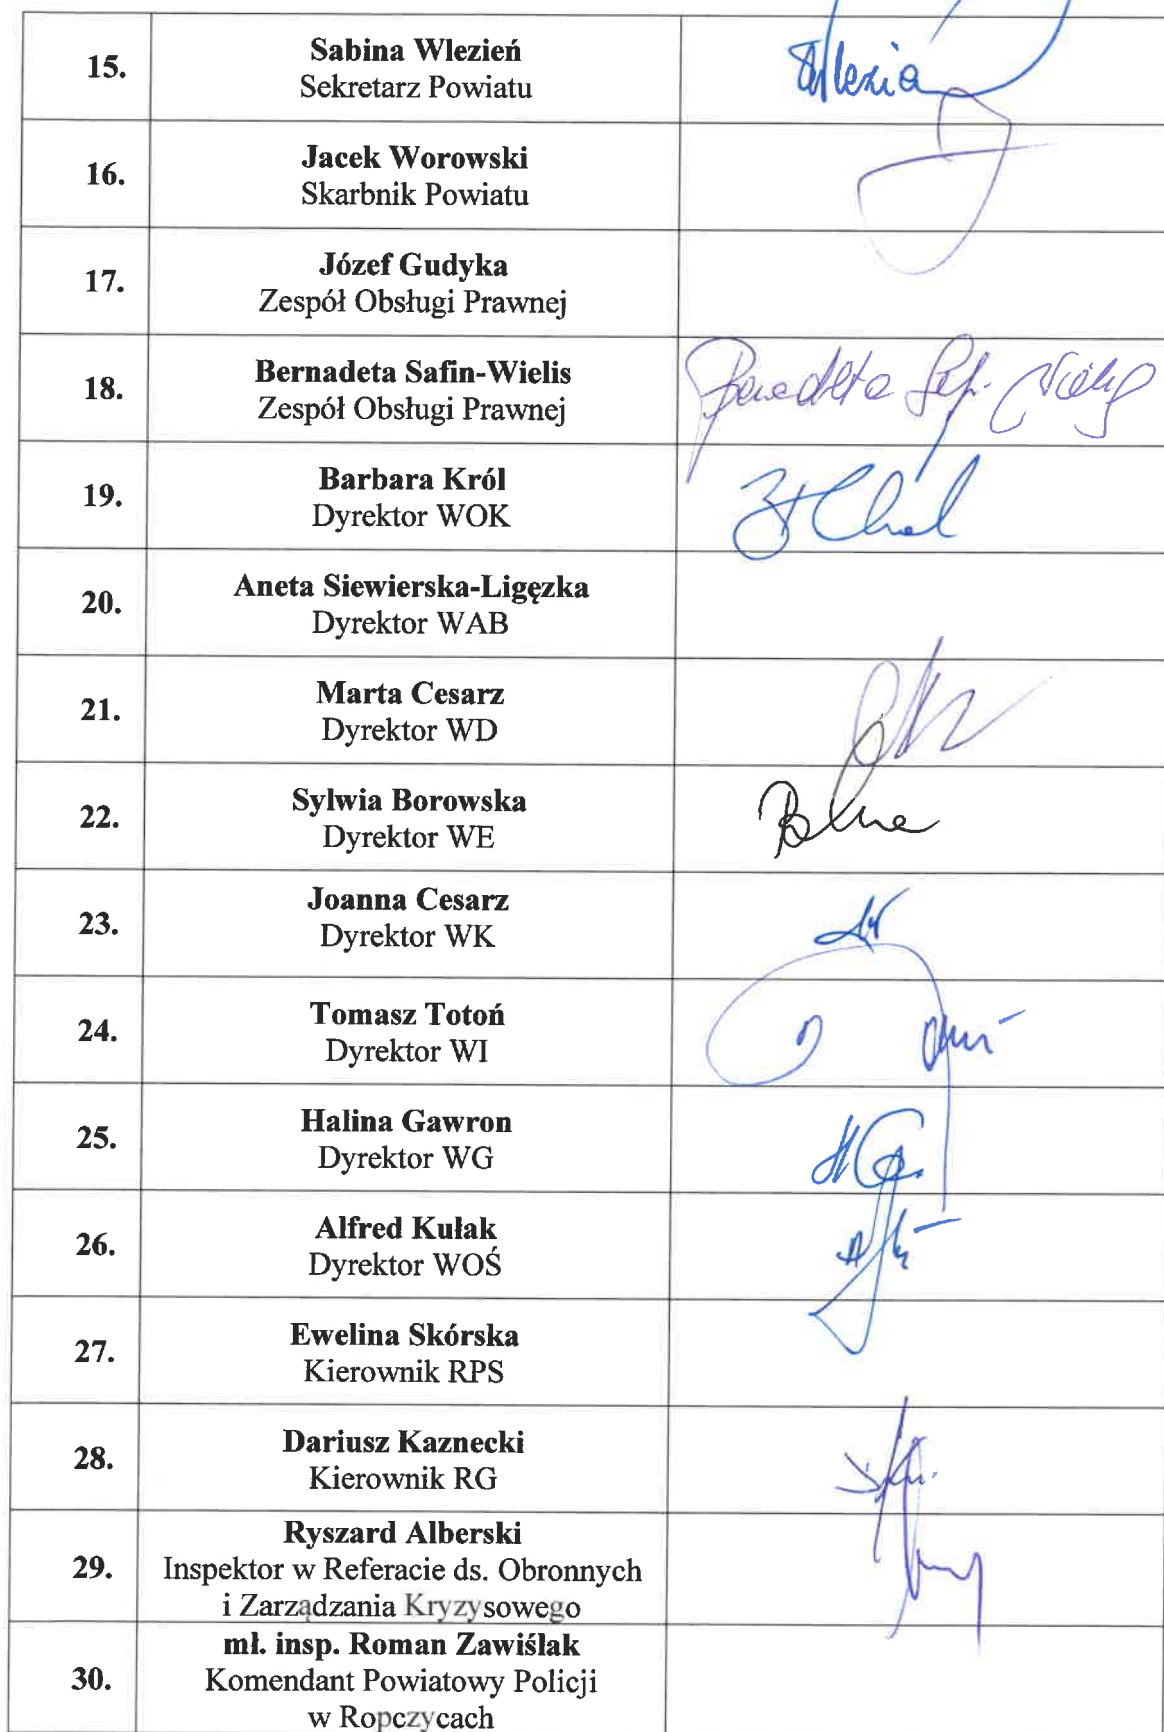 15.
Sabina Wlezień
Sekretarz Powiatu
16.
Jacek Worowski
Skarbnik Powiatu
17.
Józef Gudyka
Zespół Obsługi Prawnej
18.
Bernadeta Safin-Wielis
Zespół Obsługi Prawnej
19.
Barbara Król
Dyrektor WOK
20.
Aneta Siewierska-Ligęzka
Dyrektor WAB
21.
Marta Cesarz
Dyrektor WD
22.
Sylwia Borowska
Dyrektor WE
23.
Joanna Cesarz
Dyrektor WK
24.
Tomasz Totoń
Dyrektor WI
25.
Halina Gawron
Dyrektor WG
26.
Alfred Kułak
Dyrektor WOŚ
27.
Ewelina Skórska
Kierownik RPS
28.
Dariusz Kaznecki
Kierownik RG
29.
Ryszard Alberski
Inspektor w Referacie ds. Obronnych
i Zarządzania Kryzysowego
30.
mł. insp. Roman Zawiślak
Komendant Powiatowy Policji
w Ropczycach